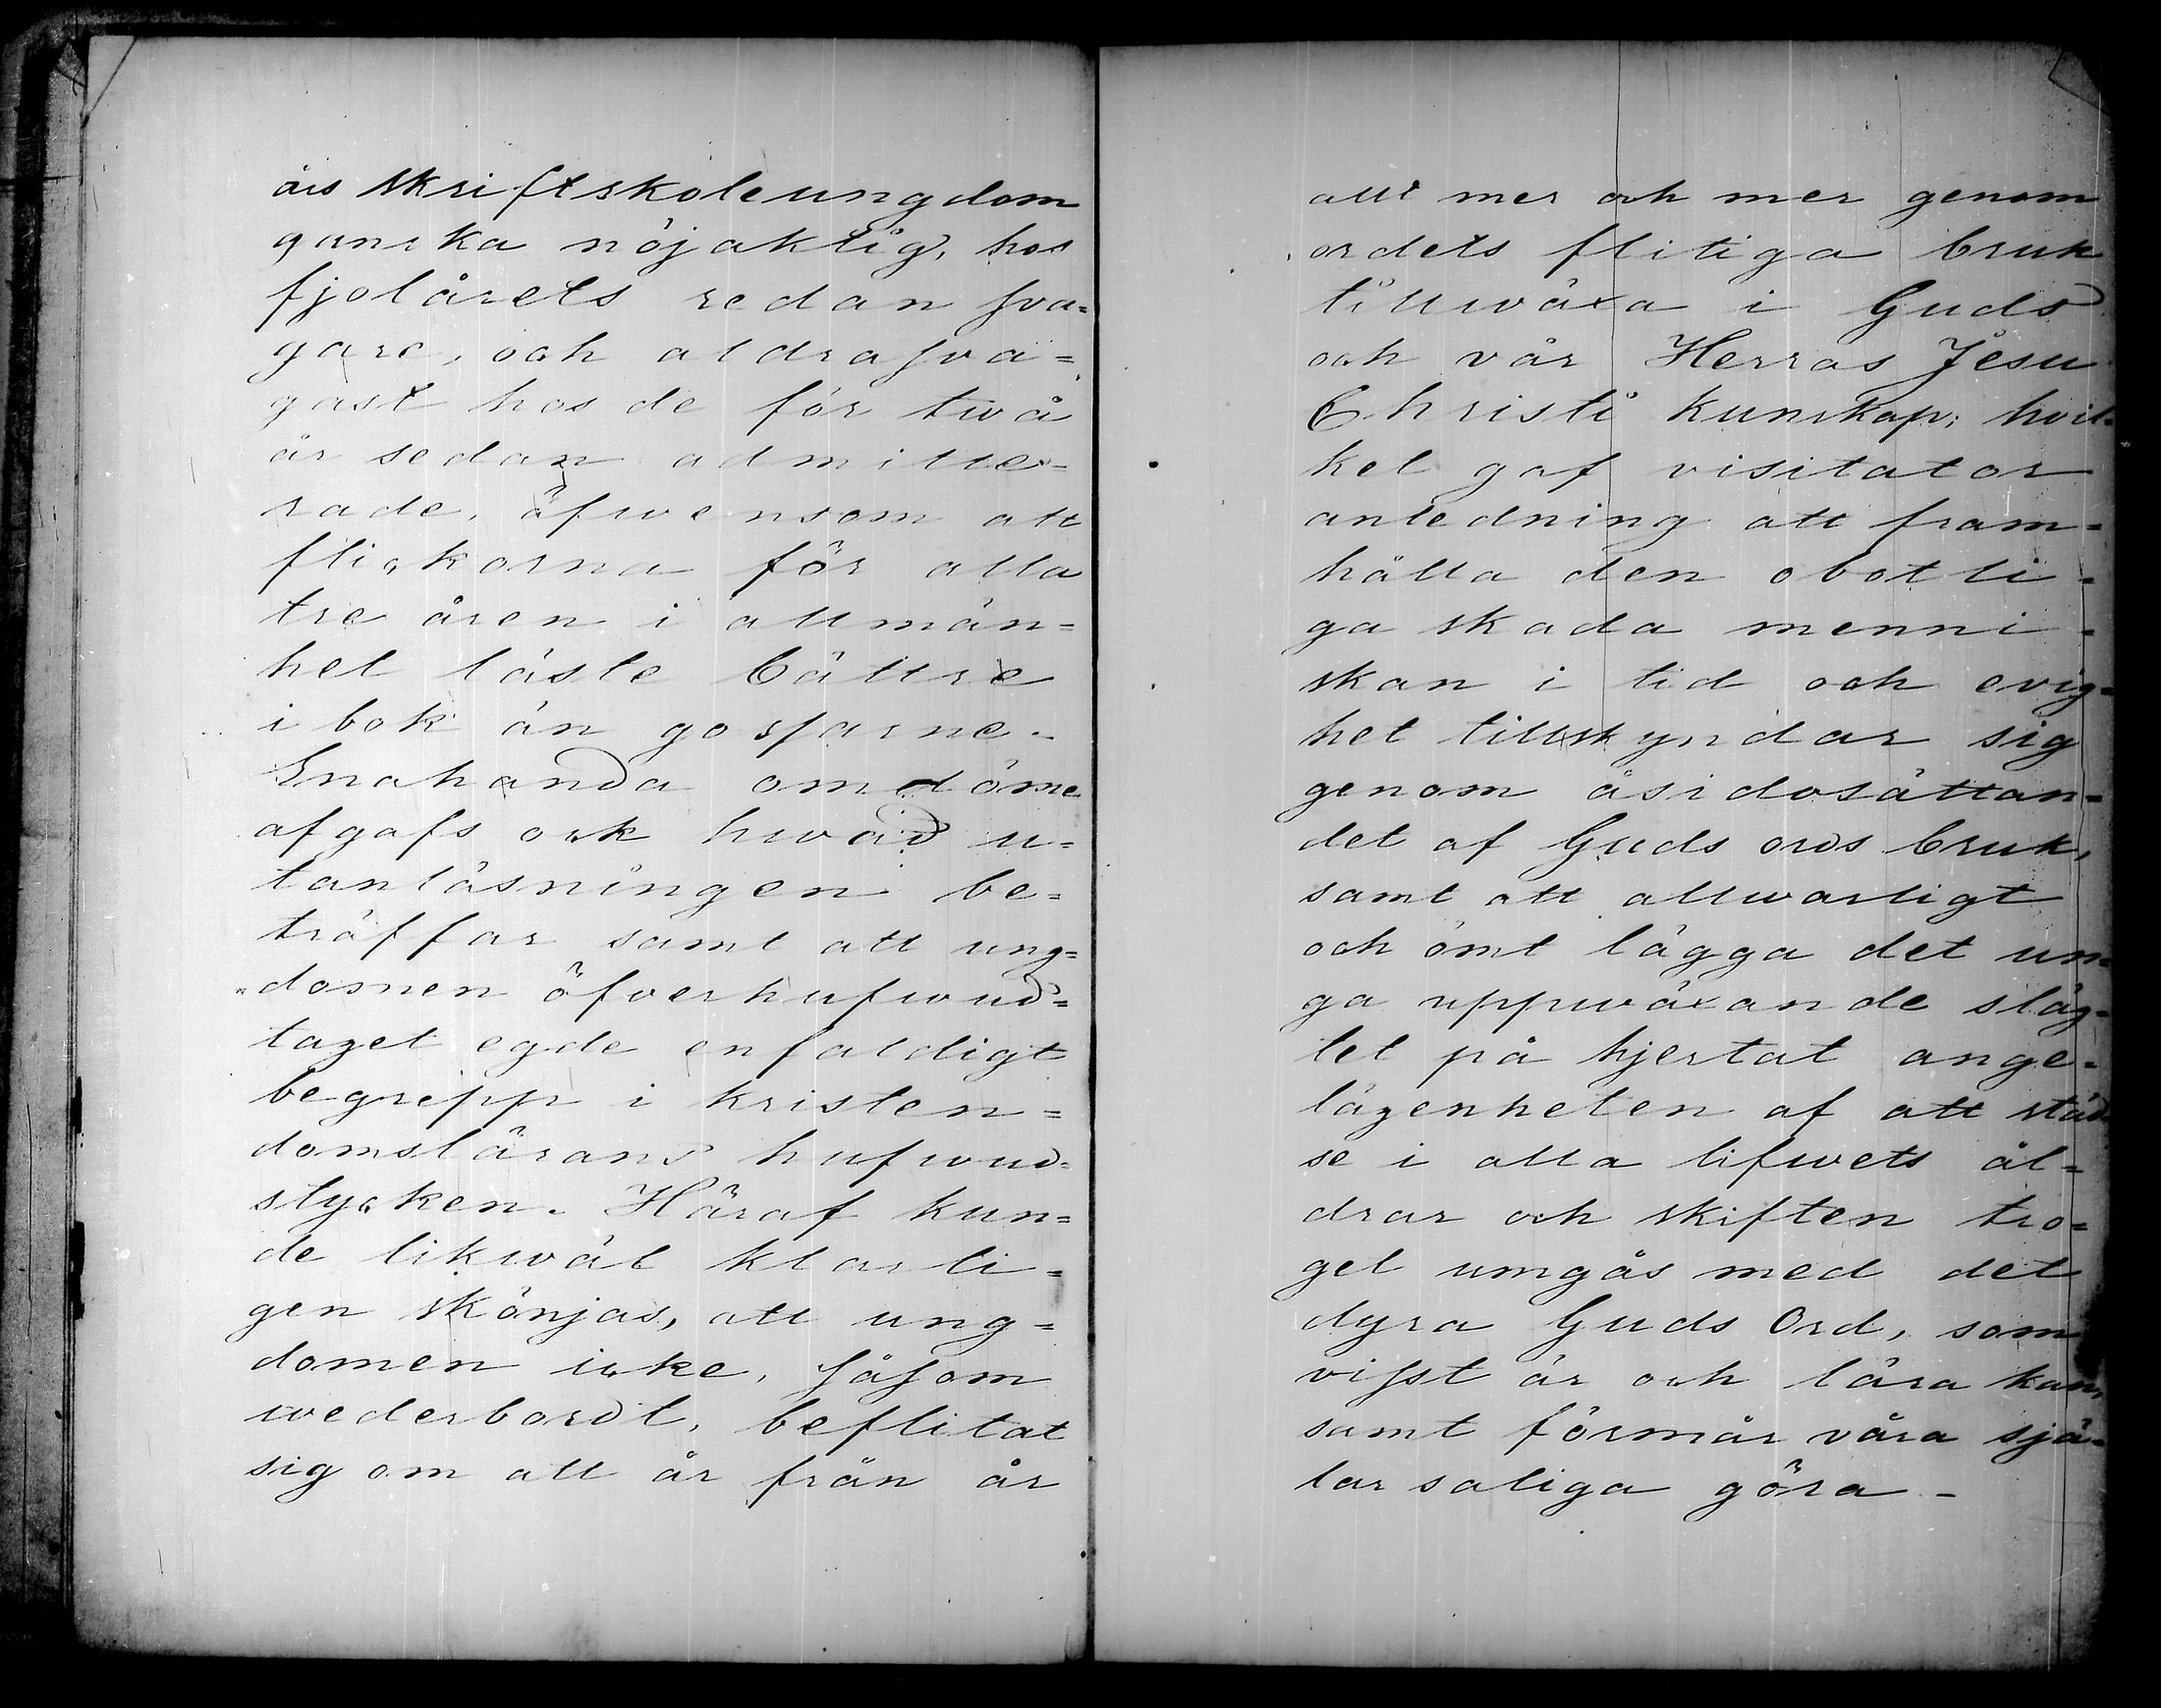 års skriftskoleungdom
ganska nöjaktig, hos
fjolårets redan sva=
gare, och aldrasva=
gast hos de för twå
år sedan admitte=
rade, äfwensom att
flickorna för alla
tre åren i allmän=
het läste bättre
i bok än gossarne.
Enahanda omdöme
afgafs ock hwad u=
tanläsningen be=
träffar samt att ung=
domen öfverhufwud=
taget egde enfaldigt
begrepp i kristen=
domslärans hufwud=
stycken. Häraf kun=
de likwäl klarli=
gen skönjas, att ung=
domen icke, såsom
wederbordt, beflitat
sig om att år från år
allt mer och mer genom
ordets flitiga bruk
tillwäxa i Guds
och vår Herras Jesu
Christi kunskap; hvil=
ket gaf visitator
anledning att fram=
hålla den obotli=
ga skada menni=
skan i tid och evig=
het tillskyndar sig
genom åsidosättan=
det af Guds ords bruk,
samt att allwarligt
och ömt lägga det un=
ga uppwäxande släg=
tet på hjertat ange=
lägenheten af att städ
se i alla lifwets ål=
drar och skiften tro=
get umgås med det
dyra Guds Ord, som
visst är och lära kan,
samt förmår våra sjä=
lar saliga göra.